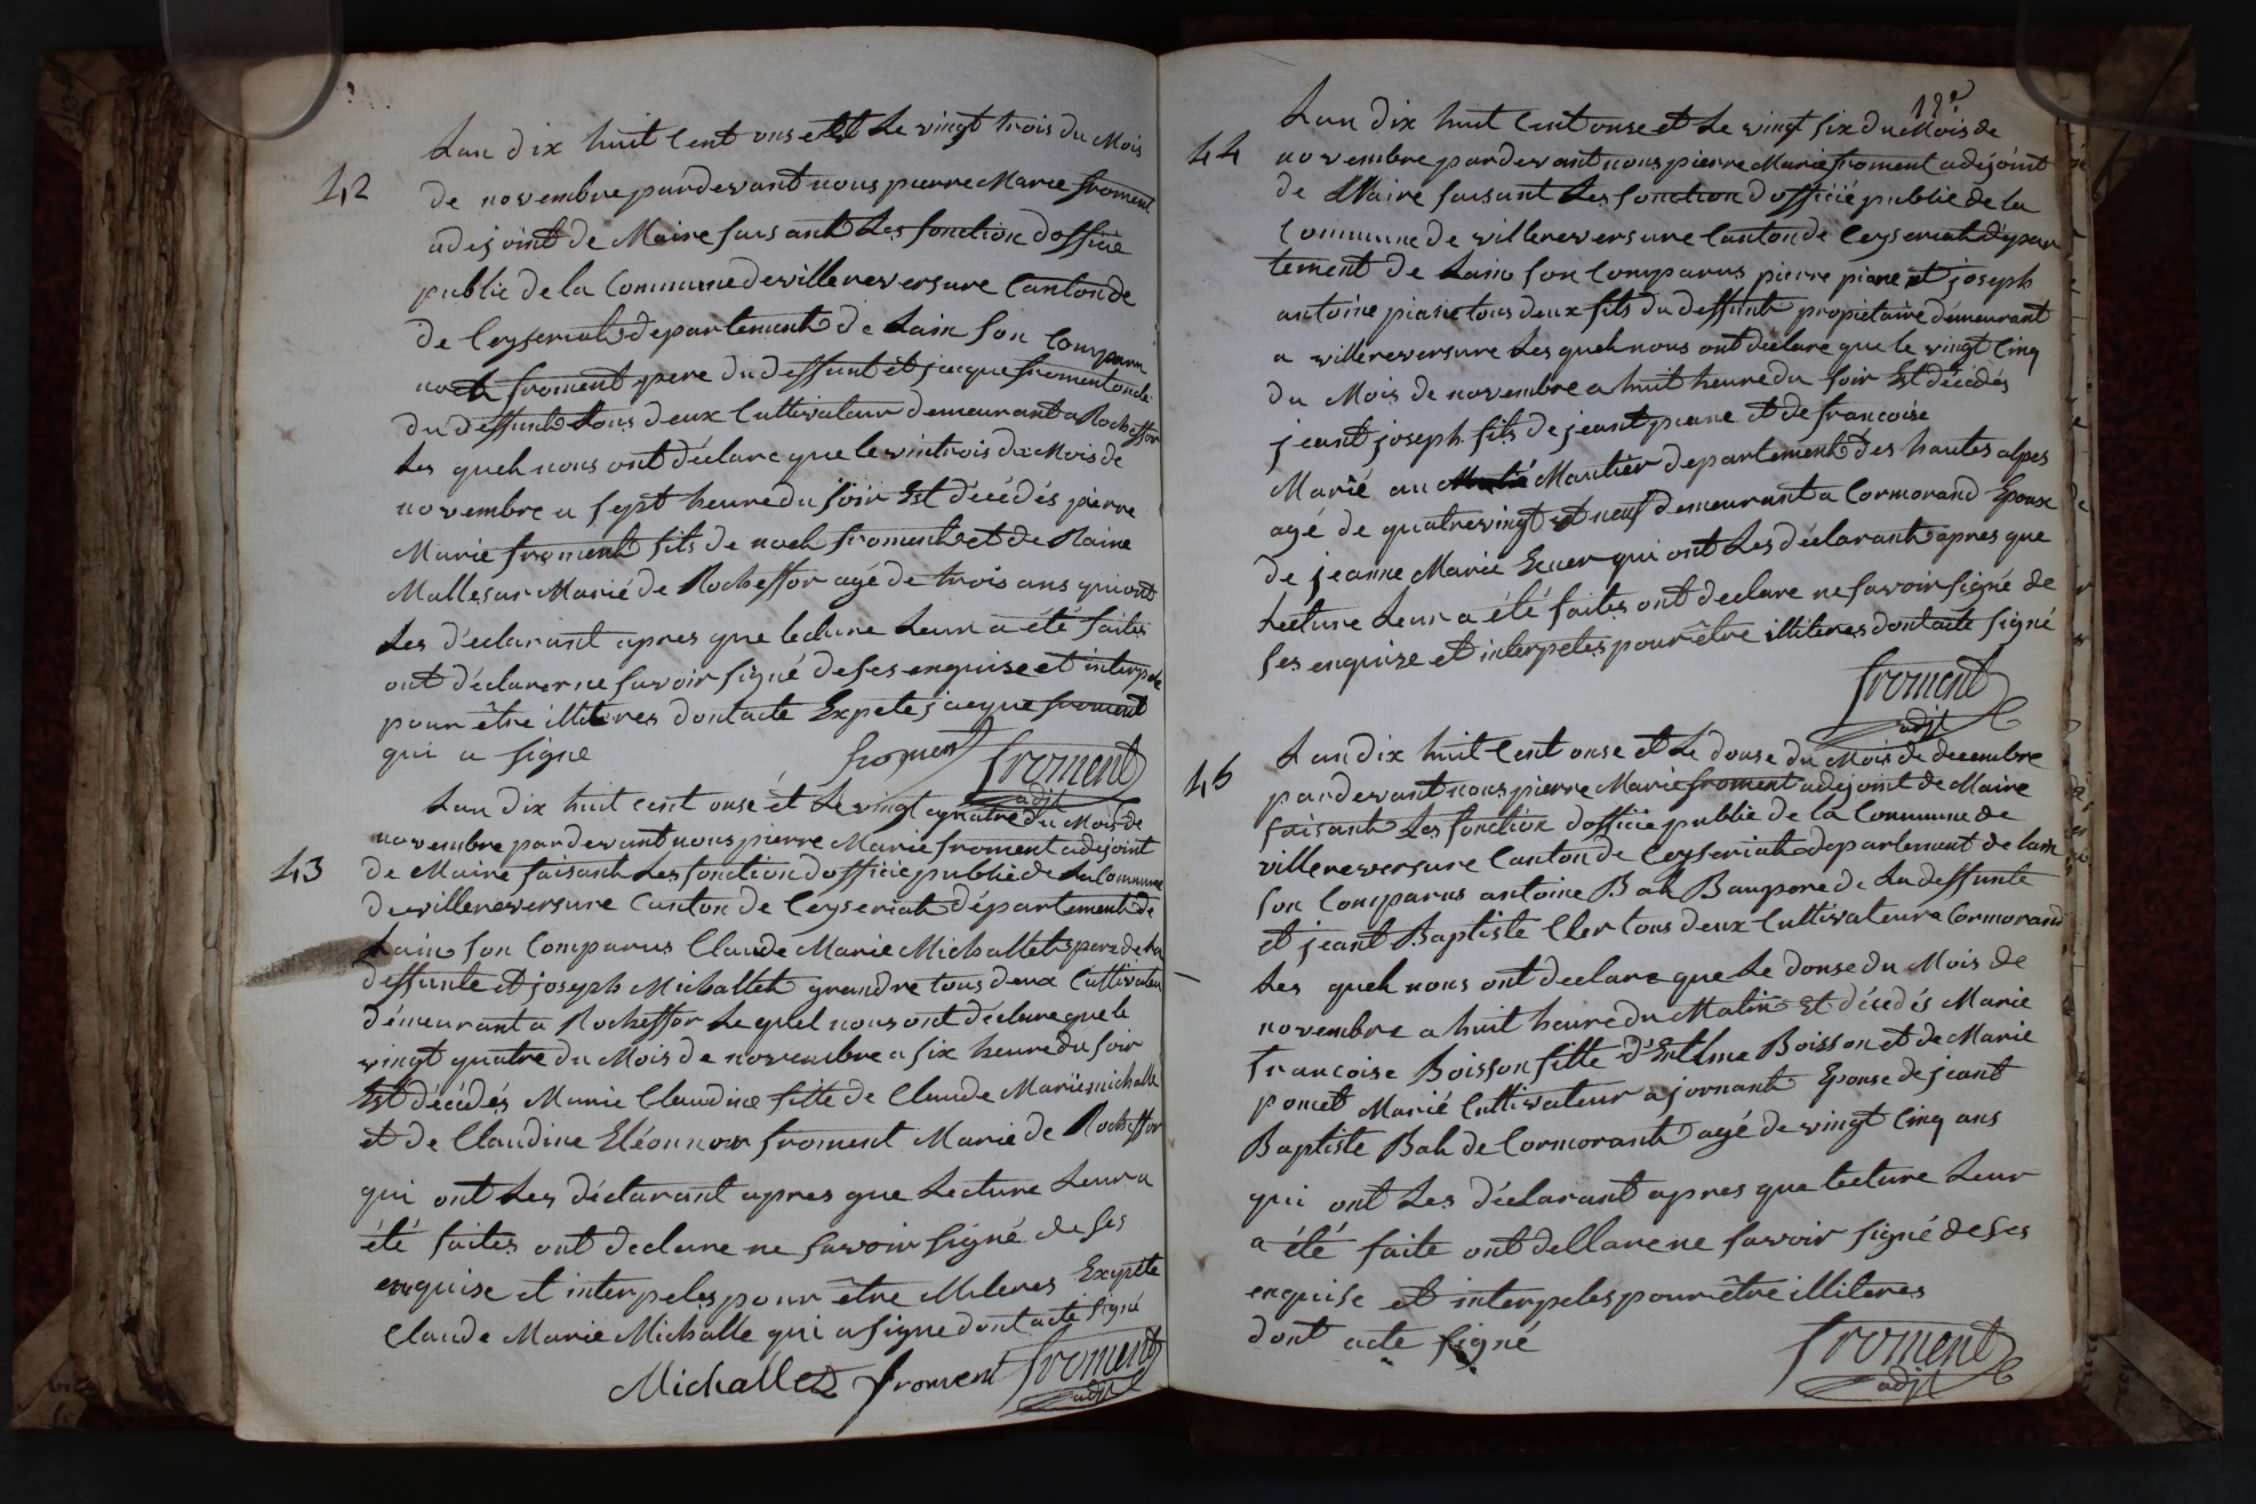 Lan dix huit Cent onse et Le vingt trois du Mois
42
de novembre pardevant nous pierre Marie froment
adejoint de Maire faisant Les fonction dofficie
public de la Commune de villereversure Canton de
de Ceyseriah departement de Lain son Comparu
noel froment pere du deffunt et jacque froment oncle
du deffunt tous deux Cultivateur demeurant a Rocheffor
Les queh nous ont déclare que le vintrois du Mois de
novembre a sept heure du soir Est décédés pierre
Marie froment fils de noeh froment et de Raine
Mallesar Marié de Rocheffor agé de trois ans qui ont
Les déclarant apres que lecture Leur a été faites
ont déclarer ne savoir signé de ses enquise et interpele
pour être illiteres dont acte Expete jacque froment
qui a signe
froment froment
adjt
Lan dix huit cent onse et Le vingt quatre du Mois de
novembre pardevant nous pierre Marie froment adejoint
43
de Maire faisant Les fonction dofficie public de La Commune
de villereversure Canton de Ceyseriah département de
Lain son Comparus Claude Marie Michallet pere de La
deffunte et joseph Michallet grandre tous deux Cultivateur
démeurant a Rocheffor Le quel nous ont déclare que le
vingt quatre du Mois de novembre a six heure du soir
Est décédés Marie Claudine fille de Claude Marie michalle
et de Claudine Eléonnor froment Marie de Rocheffor
qui ont Les déclarant apres que Lecture Leur a
été faites ont declare ne savoir signé de ses
enquise et interpeles pour être illiteres Exepte
Claude Marie Michalle qui a signe dont acte signé
Michallet froment froment
adjt
12e
Lan dix huit Cent onse et Le vingt six du Mois de
44
novembre pardevant nous pierre Marie froment adejoint
de Maire faisant Les fonction dofficié public de la
Commune de villereversure Canton de Ceyseriah depar
tement de Lain son Comparus pierre piane et joseph
antoine piane tous deux fils du deffunt propietaire démeurant
a villereversure Les queh nous ont déclare que le vingt Cinq
du Mois de novembre a huit heure du soir Est décédés
jeant joseph fils de jeant piane et de francoise
Marié au Mantier departement des hautes alpes
agé de quatrevingt et neuf demeurant a Cormorand Epoux
de jeanne Marie Ecuer qui ont Les déclarant apres que
Lecture Leur a été faites ont declare ne savoir signé de
ses enquise et interpeles pour être illiteres dont acte signé
froment
adjt
Lan dix huit Cent onse et Le douse du Mois de decembre
45
pardevant nous pierre Marie froment adejoint de Maire
faisant Les fonction dofficie public de la Commune de
villereversure Canton de Ceyseriah departement de Lain
son Comparus antoine Bah Baupere de La deffunte
et jeant Baptiste Cler tous deux Cultivateur a Cormorand
Les queh nous ont declare que Le douse du Mois de
novembre a huit heure du Matin Est décédés Marie
francoise Boisson fille d'Entelme Boisson et de Marie
poncet Marié Cultivateur a jornant Epouse de jeant
Baptiste Bah de Cormorant agé de vingt Cinq ans
qui ont Les déclarant apres que lecture Leur
a été faite ont dellare ne savoir signé de ses
enquise et interpeles pour être illiteres
dont acte signé
froment
adjt